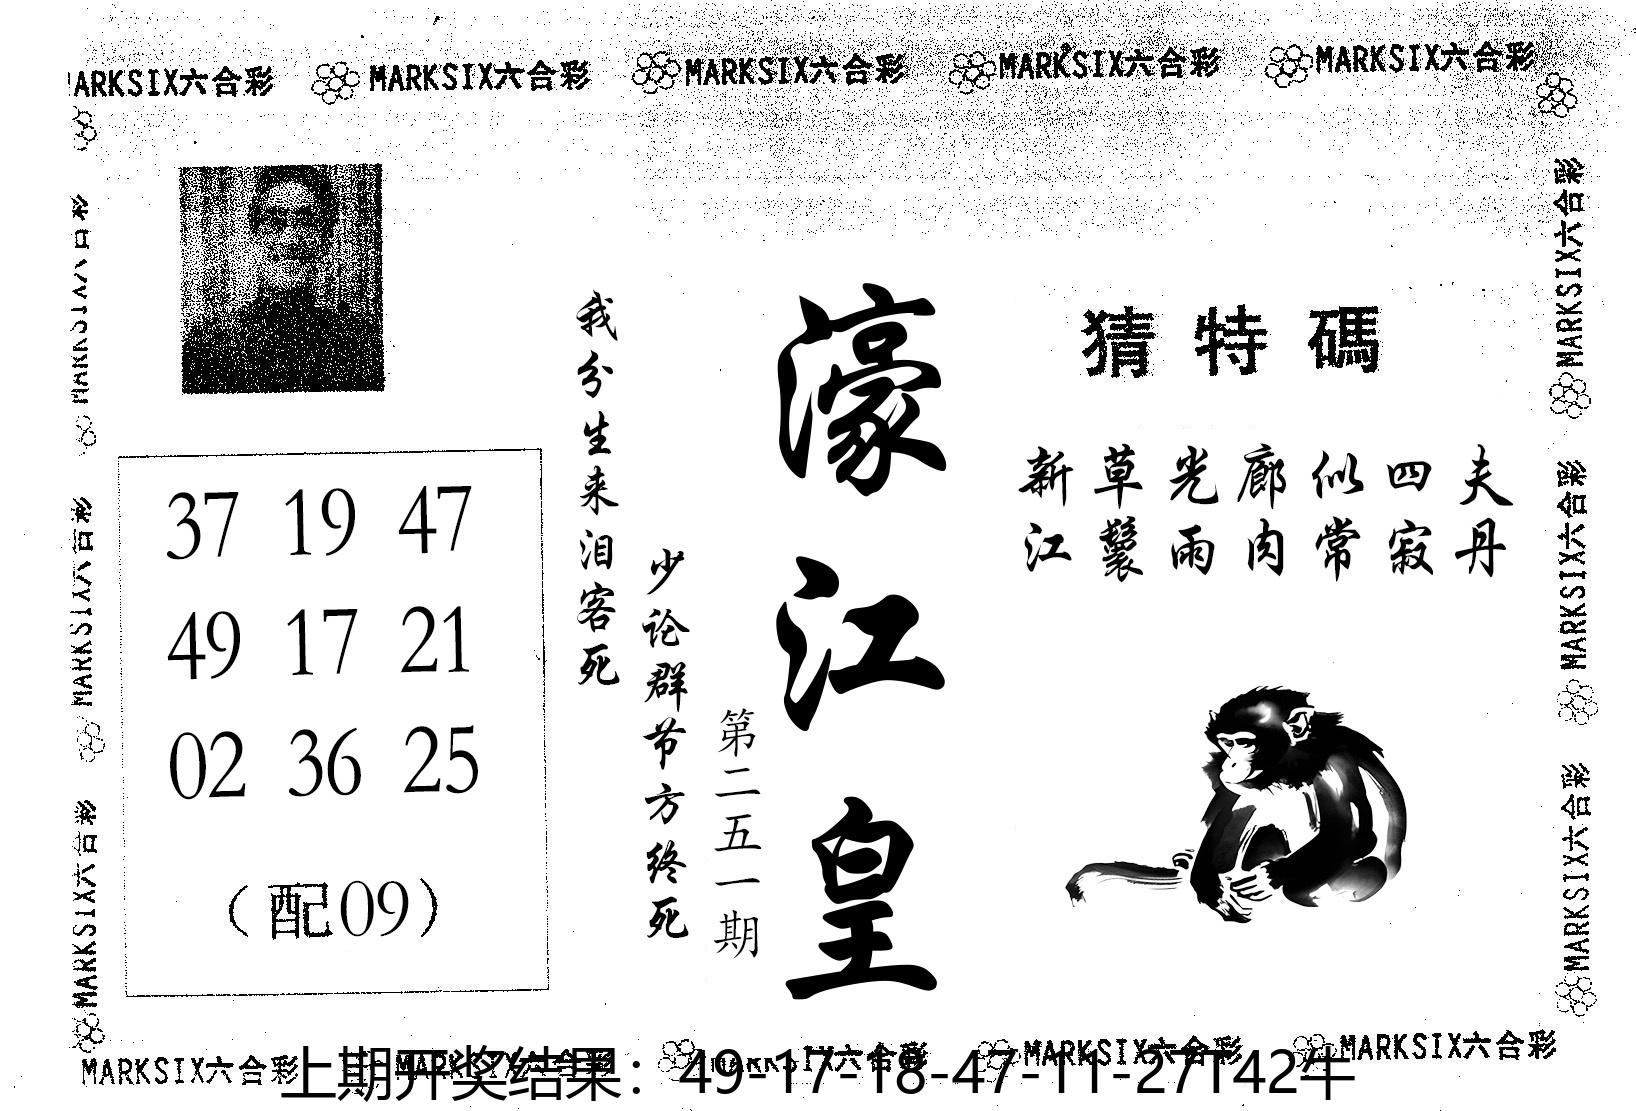 MARKSIX六合彩 MARKSIX六合彩 MARKSIX六合彩 MARKSIX六合彩 MARKSIX六合彩
MARKSIX六合彩
MARKSIX六合彩
MARKSIX六合彩
37 19 47
49 17 21
02 36 25
(配09)
我分生来泪客死
少论群节方终死
第二五一期
濠江皇
猜特碼
新草光廊似四夫
江鬟雨肉常寂丹
MARKSIX六合彩
MARKSIX六合彩
MARKSIX六合彩
MARKSIX六合彩 MARKSIX六合彩 MARKSIX六合彩 MARKSIX六合彩 MARKSIX六合彩
上期开奖结果：49-17-18-47-11-27T42牛